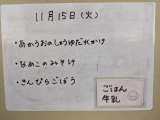 11月15日(火)
・あかうおのしょうゆだれかけ
・なめこのみそ汁
・きんぴらごぼう
ごはん
牛乳